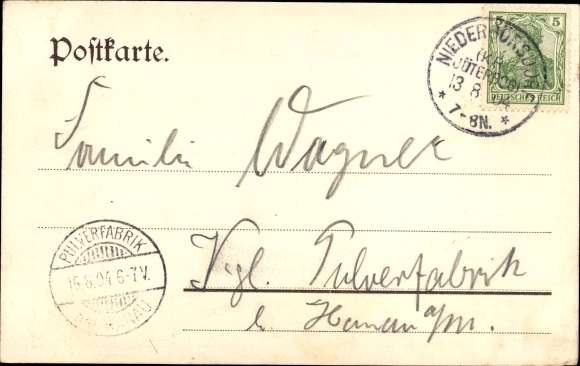 Postkarte.
5
DEUTSCHES REICH
NIEDER
JÜTERBOG
13 8 04
* 7-8N. *
Familie Wagner
PULVERFABRIK
15.8.04 6-7V.
HANAU
Kgl. Pulverfabrik
b. Hanau a/M.